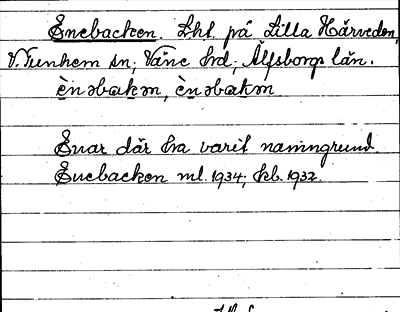 Enebacken. Lht. på Lilla Härveden,
V. Tunhem sn, Väne hd, Älfsborgs län.
è̀nəbakən, è̀nəbakən
Enar där ha varit namngrund.
Enebacken ml. 1934; kb. 1932.